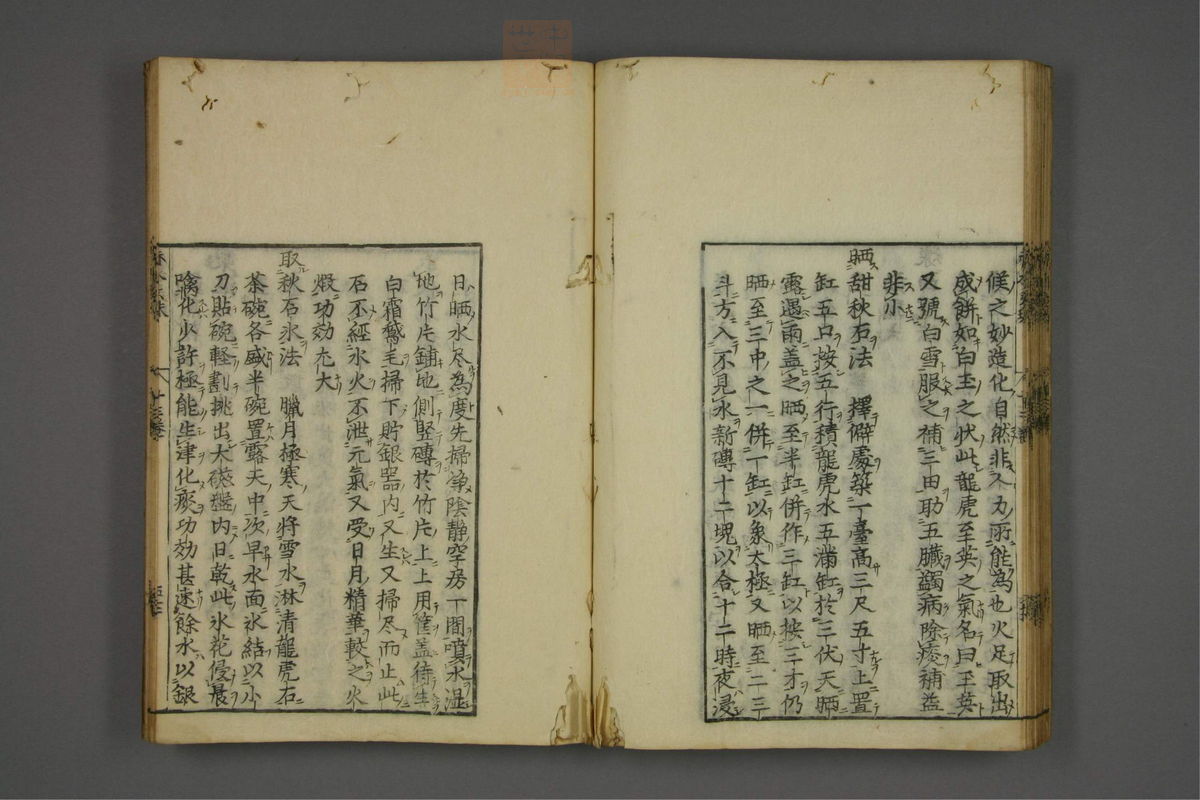 候之妙造化自然非人力所能為也火足取出
成餅如白玉之状此龍虎至英之氣名曰玉英
又號白雪服之補三田助五臓蠲病除痿補益
非小
晒甜秋石法　擇僻處築一臺高三尺五寸上置
缸五口按五行積龍虎水五滿缸於三伏天晒
露遇雨盖之晒至半缸併作三缸以按三才仍
晒至三中之一併一缸以象太極又晒至二三
斗方入不見水新磚十二塊以合十二時夜浸
日晒水尽為度先掃净陰静空房一間噴水湿
地竹片鋪地側竪磚於竹片上上用筐盖待生
白霜鵞毛掃下貯銀器内又生又掃尽而止此
石不經水火不泄元氣又受日月精華較之火
煅功効尤大
取秋石氷法　臘月極寒天将雪水淋清龍虎石
茶碗各盛半碗置露天中次早水面氷結以小
刀貼碗軽劃挑出大磁盤内日乾此氷花侵晨
噙化少許極能生津化痰功効甚速餘水以銀